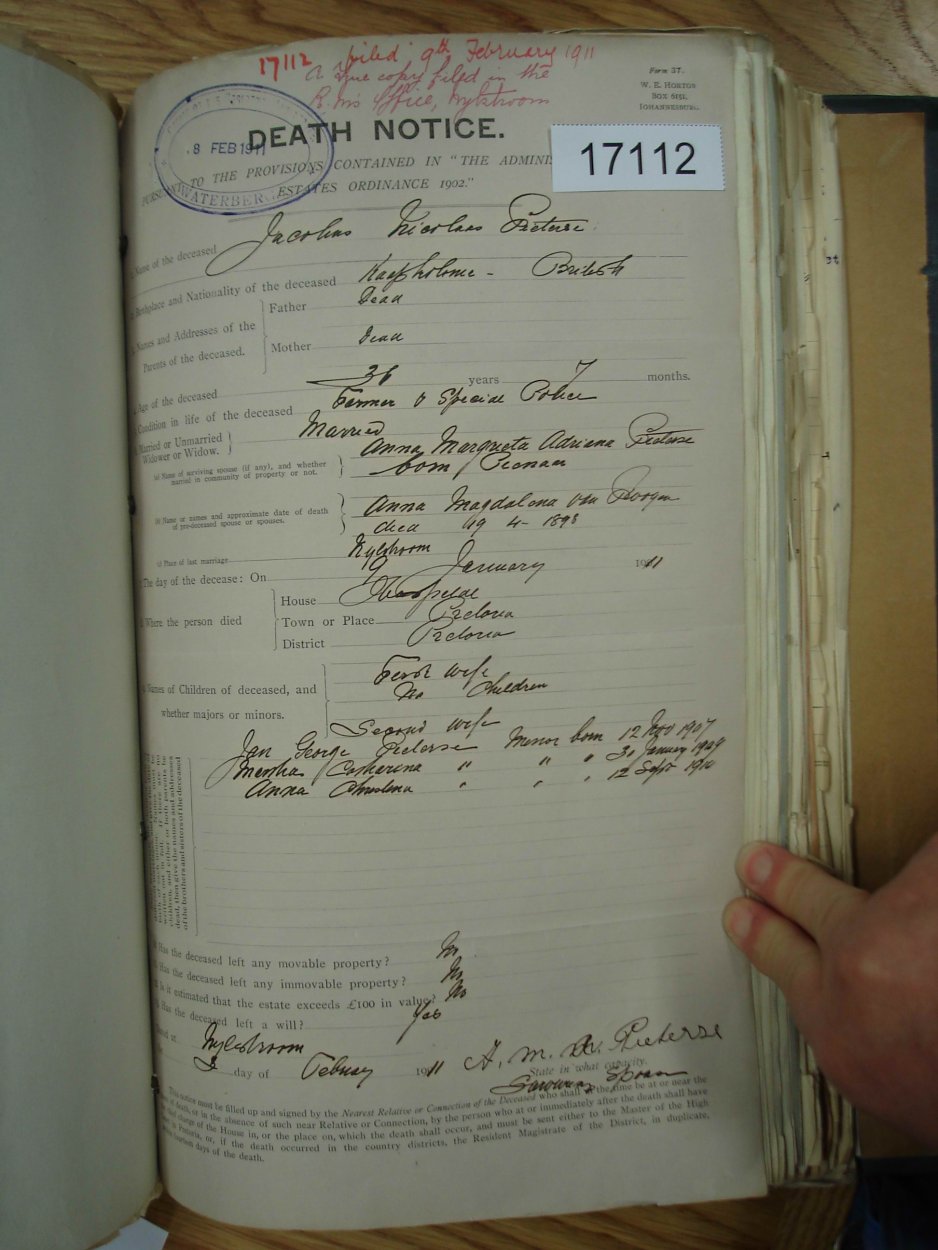 17112 filed 9th February 1911
A true copy filed in the
R.M's Office, Nylstroom
Form 37.
W. E. HORTOR
BOX 6151,
JOHANNESBURG.
DEATH NOTICE.
8 FEB 1911
WATERBERG
17112
PURSUANT TO THE PROVISIONS CONTAINED IN "THE ADMINIS
ESTATES ORDINANCE 1902."
Name of the deceased Jacobus Nicolaas Pieterse
Birthplace and Nationality of the deceased British
Names and Addresses of the Parents of the deceased.
Father Dead
Mother Dead
Age of the deceased 36 years 7 months.
Condition in life of the deceased Farmer & Special Police
Married or Unmarried Widower or Widow. Married
(a) Name of surviving spouse (if any), and whether married in community of property or not.
Anna Margrieta Adriana Pieterse
born Pienaar
(b) Name or names and approximate date of death of pre-deceased spouse or spouses.
Anna Magdalena van
died 4 - 1898
(c) Place of last marriage Nylstroom
The day of the decease: On 9 January 1911
Where the person died
House Hospital
Town or Place Pretoria
District Pretoria
Names of Children of deceased, and
whether majors or minors.
First wife
No Children
Second wife
Jan George Pieterse Minor born 12 Nov 1907
Martha Catharina " " " January 1909
Anna Christina " " " 12 Sept 1910
dead, then give the names and addresses
of the brothers and sisters of the deceased
Has the deceased left any movable property? No
Has the deceased left any immovable property? No
Is it estimated that the estate exceeds £100 in value? No
Has the deceased left a will? Yes
Dated at Nylstroom
day of February 1911 A. M. A. Pieterse
State in what capacity.
Surviving Spouse
This notice must be filled up and signed by the Nearest Relative or Connection of the Deceased who shall at the time be at or near the
of death, or in the absence of such near Relative or Connection, by the person who at or immediately after the death shall have
charge of the House in, or the place on, which the death shall occur, and must be sent either to the Master of the High
Pretoria, or, if the death occurred in the country districts, the Resident Magistrate of the District, in duplicate,
fourteen days of the death.